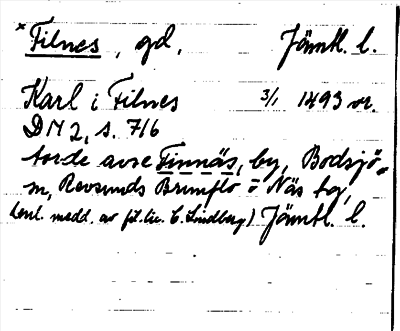 *Filnes, gd, Jämtl. l.
Karl i Filnes 3/1 1493 or.
DN 2, s. 716
torde avse Finnäs, by, Bodsjö
sn, Revsunds Brunflo o Näs tg,
(enl. medd. av fil. lic. C. Lindberg) Jämtl. l.